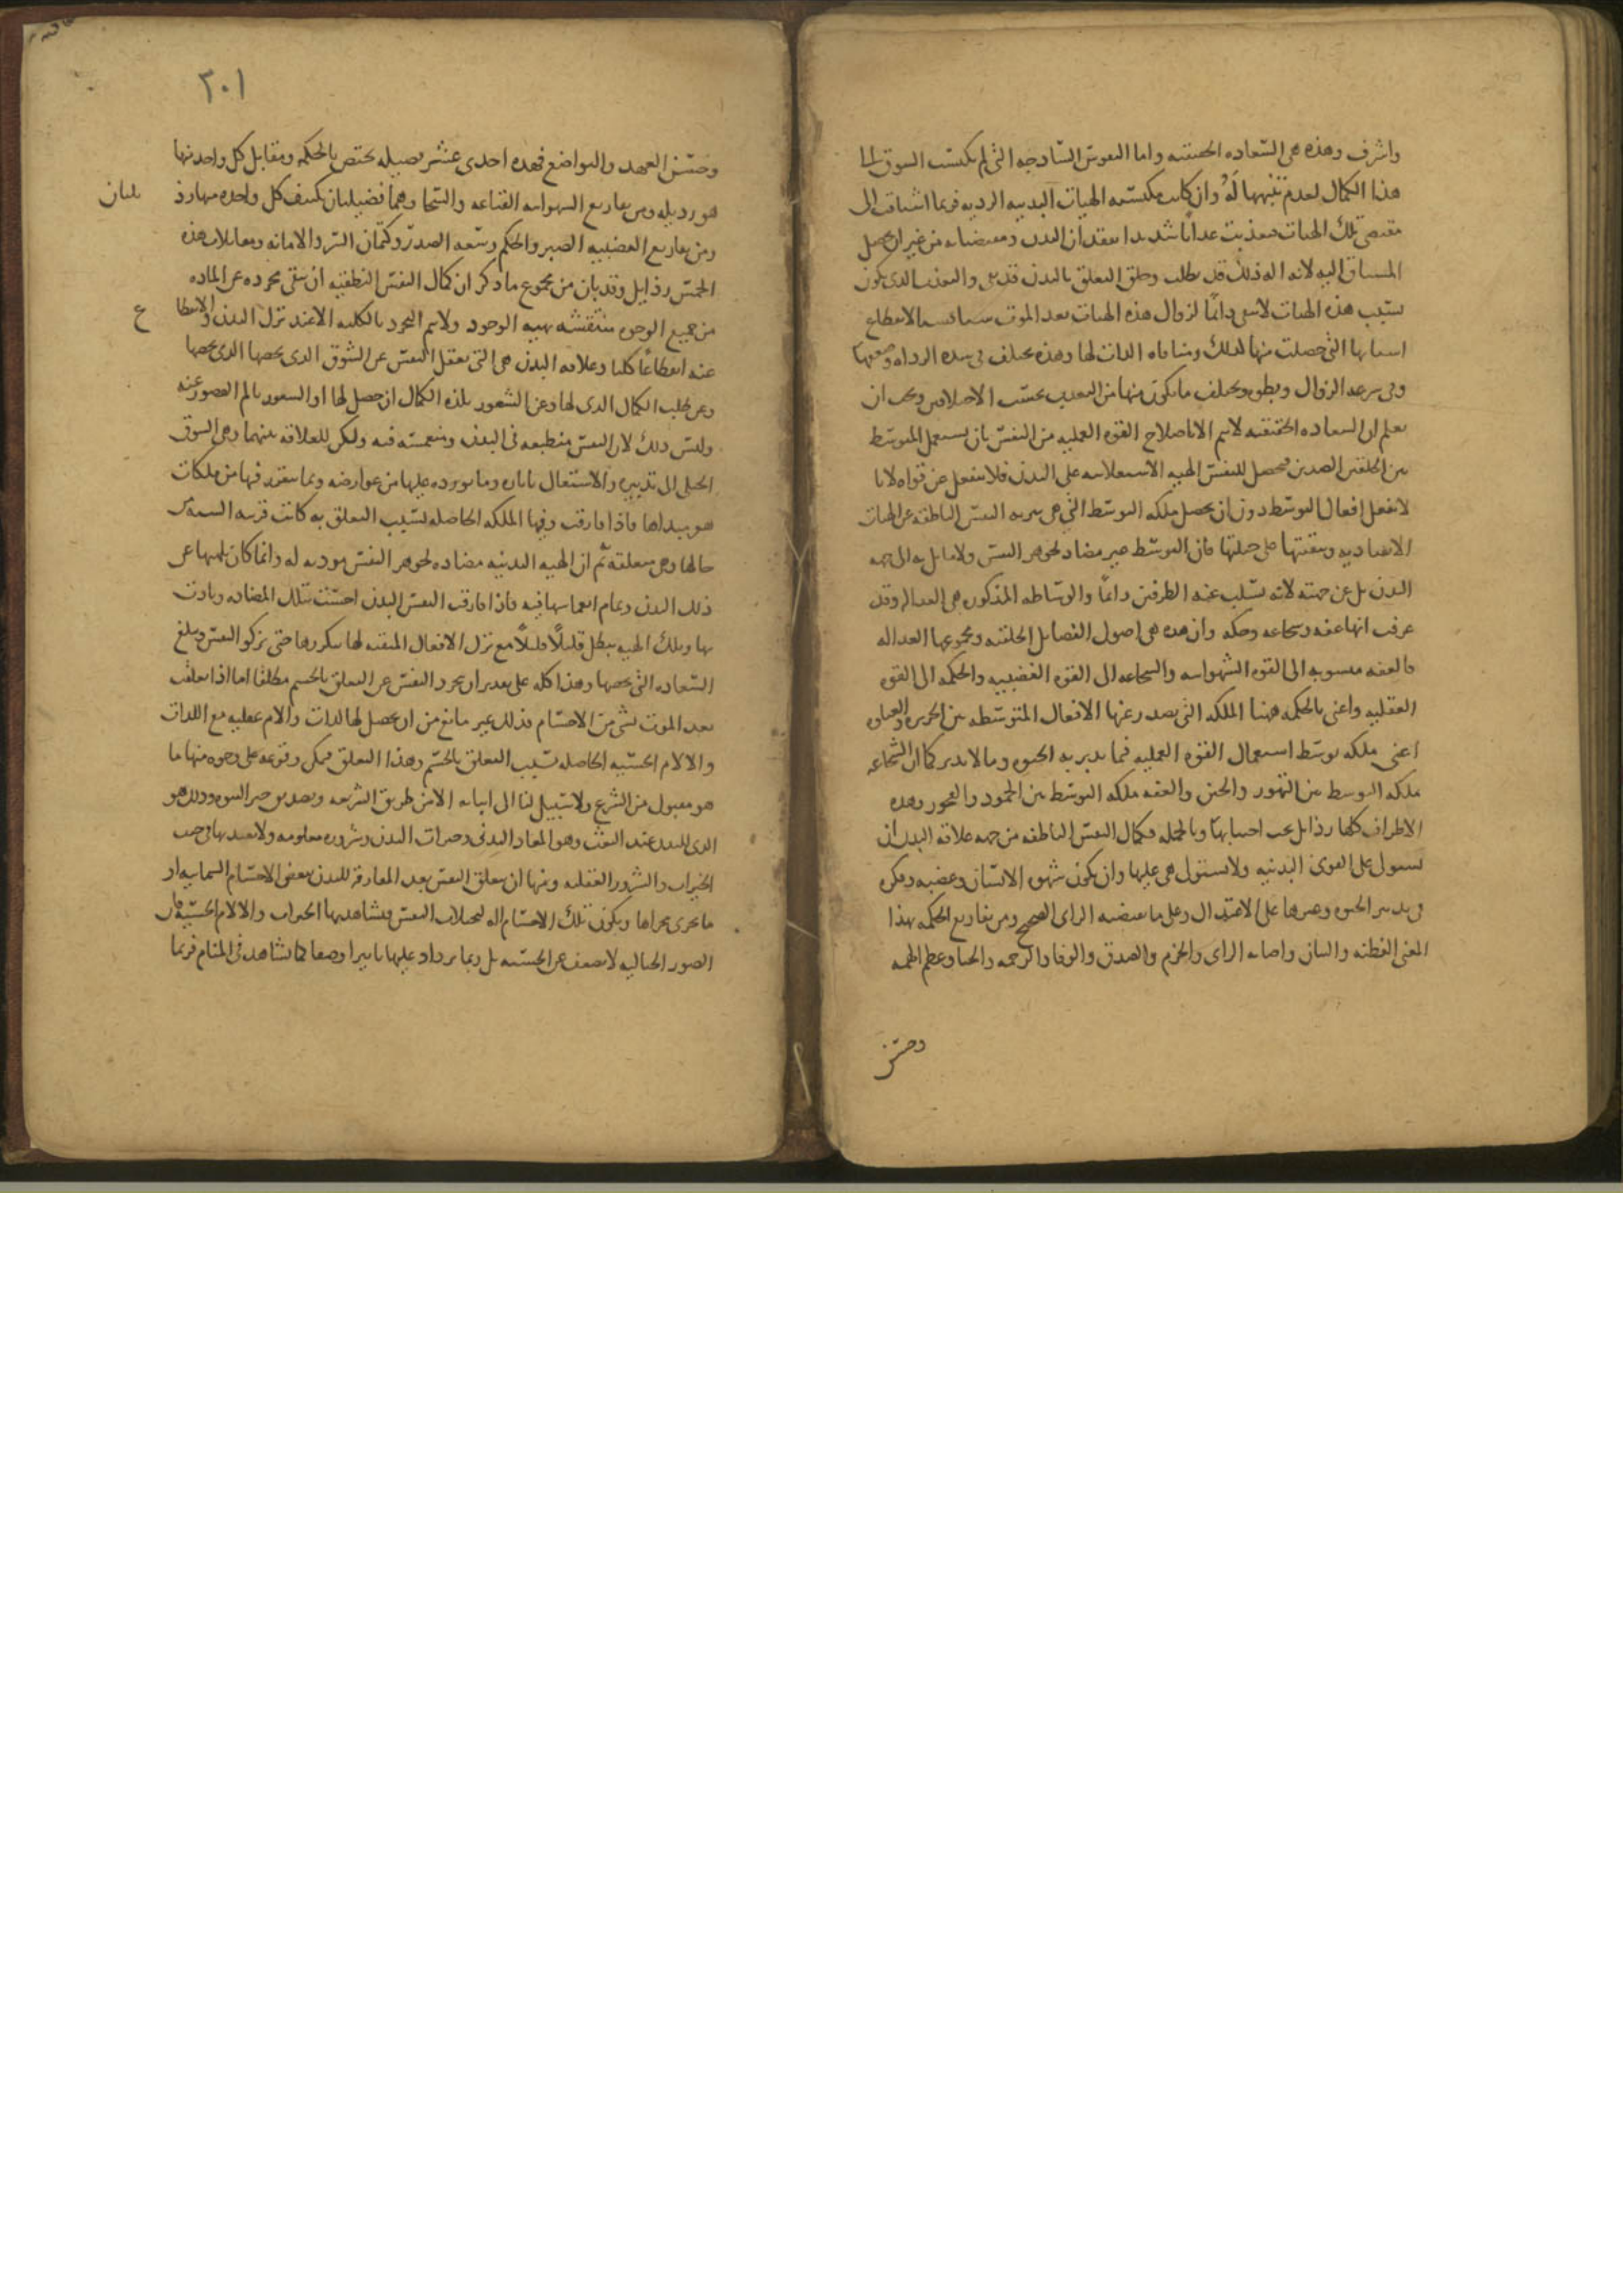 واشرف وهذه هى السعاده الحقيقيه واما النفوس الساذجه التى لم تكتسب الشوق الى
هذا الكمال لعدم تنبهها له وان كانت مكتسبه الهيات البدنيه الرديه فربما اشتاقت الى
مقتضى تلك الهيات فتعذبت عذابا شديدا بفقدان البدن ومقتضياته من غير ان يحصل
المشتاق اليه لان اله ذلك قد بطلت وخلق التعلق بالبدن قد بقى والتعذيب الذى يكون
بسبب هذه الهيات لا يبقى دائما لزوال هذه الهيات بعد الموت شيئا فشيئا لانقطاع
اسبابها التى حصلت منها لذلك ومنافاه الذات لها وهذه تختلف فى شده الرداه وضعفها
وفى سرعه الزوال وبطوه ويختلف ما يكون منها من التعذيب بحسب الاختلافين ويجب ان
تعلم ان السعاده الحقيقيه لا تتم الا باصلاح القوه العمليه من النفس بان يستعمل المتوسط
بين الخلقين الضدين فيحصل للنفس الهيه الاستعلائيه على البدن فلا تنفعل عن قواه لا بان
لا تفعل افعال التوسط دون ان يحصل ملكه التوسط التى هى تبريه النفس الناطقه عن الهيات
الانقياديه وتبقيتها على جبلتها فان التوسط غير مضاد لجوهر النفس ولا مايل به الى جهه
البدن بل عن جهته لانه يسلب عنه الطرفين دائما والوساطه المذكوره هى العداله وقد
عرفت انها عفه وشجاعه وحكمه وان هذه هى اصول الفضايل الخلقيه ومجموعها العداله
فالعفه منسوبه الى القوه الشهوانيه والشجاعه الى القوه الغضبيه والحكمه الى القوه
العقليه واعنى بالحكمه ههنا الملكه التى يصدر عنها الافعال المتوسطه بين الجربزه والغباوه
اعنى ملكه توسط استعمال القوه العمليه فيما يدبر به الحيوه وما لا يدبر كما ان الشجاعه
ملكه التوسط بين التهور والجبن والعفه ملكه التوسط بين الجمود والفجور وهذه
الاطراف كلها رذايل يجب اجتنابها وبالجمله فكمال النفس الناطقه من جهه علاقه البدن ان
تستولى على القوى البدنيه ولا تستولى هى عليها وان يكون شهوه الانسان وغضبه وفكره
فى تدبير الحيوه وغيرها على الاعتدال وعلى ما يقتضيه الراى الصحيح ومن تفاريع الحكمه بهذا
المعنى الفطنه والبيان واصابه الراى والحزم والصدق والوفا والرحمه والحيا وعظم الهمه
وحسن
٣٠١
وحسن العهد والتواضع فهذه احدى عشر فضيله تختص بالحكمه ومقابل كل واحد منها
هو رذيله ومن تفاريع الشهوانيه القناعه والسخا وهما فضيلتان يكتنف كل واحده منهما رذ يلتان
ومن تفاريع الغضبيه الصبر والحلم وسعه الصدر وكتمان السر والامانه ومقابلات هذه
الخمس رذايل وقد بان من مجموع ما ذكر ان كمال النفس النطقيه ان تبقى مجرده عن الماده
من جميع الوجوه منتقشه بهيه الوجود ولا يتم التجرد بالكليه الا عند ترك البدن والانقطا ع
عنه انقطاعا كليا وعلاقه البدن هى التى تغفل النفس عن الشوق الذى يخصها الذى يخصها
وعن طلب الكمال الذى لها وعن الشعور بلذه الكمال ان حصل لها او الشعور بالم القصور عنه
وليس ذلك لان النفس منطبعه فى البدن ومنغمسه فيه ولكن للعلاقه بينهما وهى الشوق
الجبلى الى تدبيره والاشتغال باثاره وما يورده عليها من عوارضه وبما يتقرر فيها من ملكات
هو مبداها فاذا فارقت وفيها الملكه الحاصله بسبب التعلق به كانت قريبه الشبه من
حالها وهى متعلقه ثم ان الهيه البدنيه مضاده لجوهر النفس موذيه له وانما كان يلهيها عن
ذلك البدن وتمام انغماسها فيه فاذا فارقت النفس البدن احست بتلك المضاده وتاذت
بها وتلك الهيه تبطل قليلا قليلا مع ترك الافعال المبقيه لها بتكررها حتى تزكو النفس وتبلغ
السعاده التى تخصها وهذا كله على تقدير ان تجرد النفس عن التعلق بالجسم مطلقا اما اذا تعلقت
بعد الموت بشى من الاجسام فذلك غير مانع من ان يحصل لها لذات والام عقليه مع اللذات
والالام الحسيه الحاصله بسبب التعلق بالجسم وهذا التعلق فيمكن وقوعه على وجوه منها ما
هو مقبول من الشرع ولا سبيل لنا الى اثباته الا من طريق الشريعه وتصديق خبر النبوه وذلك هو
الذى للبدن عند البعث وهو المعاد البدنى وخيرات البدن وشروره معلومه ولا يعتد بها فى جنب
الخيرات والشرور العقليه ومنها ان يتعلق النفس بعد المفارقه للبدن ببعض الاجسام السماويه او
ما يجرى مجراها ويكون تلك الاجسام اله لتخيلات النفس فتشاهد بها الخيرات والالام الحسيه فان
الصور الخياليه لا تضعف عن الحسيه بل ربما يزداد عليها تاثيرا وصفا كما تشاهد فى المنام فربما